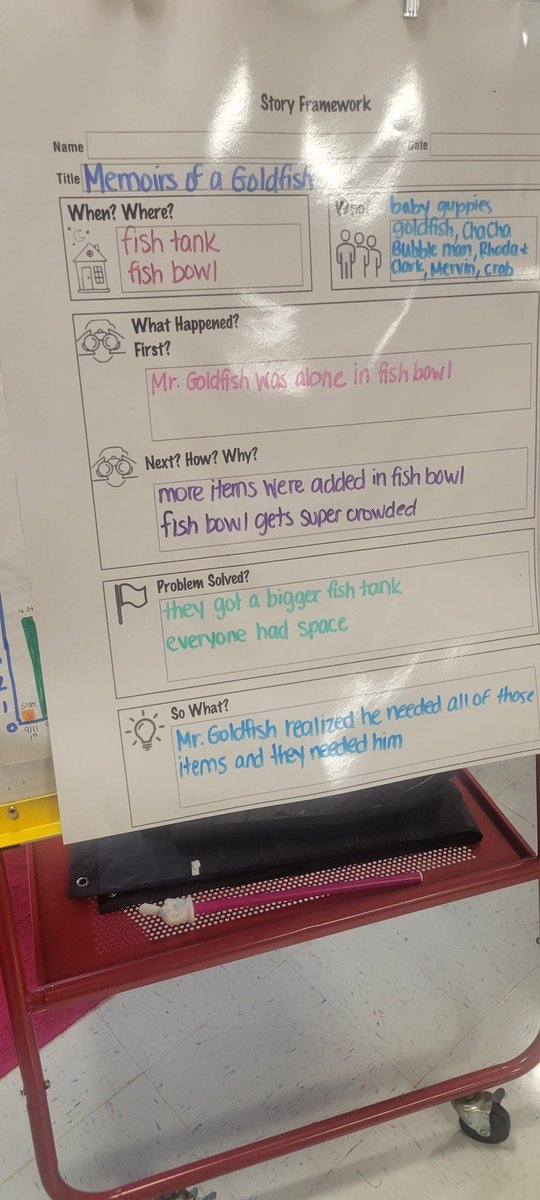 Story Framework
Name
Date
Title Memoirs of a Goldfish
When? Where?
fish tank
fish bowl
Who?
baby guppies
goldfish, ChaCha
Bubble man, Rhoda +
Clark, Mervin, crab
What Happened?
First?
Mr. Goldfish was alone in fish bowl
Next? How? Why?
more items were added in fish bowl
fish bowl gets super crowded
Problem Solved?
they got a bigger fish tank
everyone had space
So What?
Mr. Goldfish realized he needed all of those
items and they needed him
2
1
0
9/11